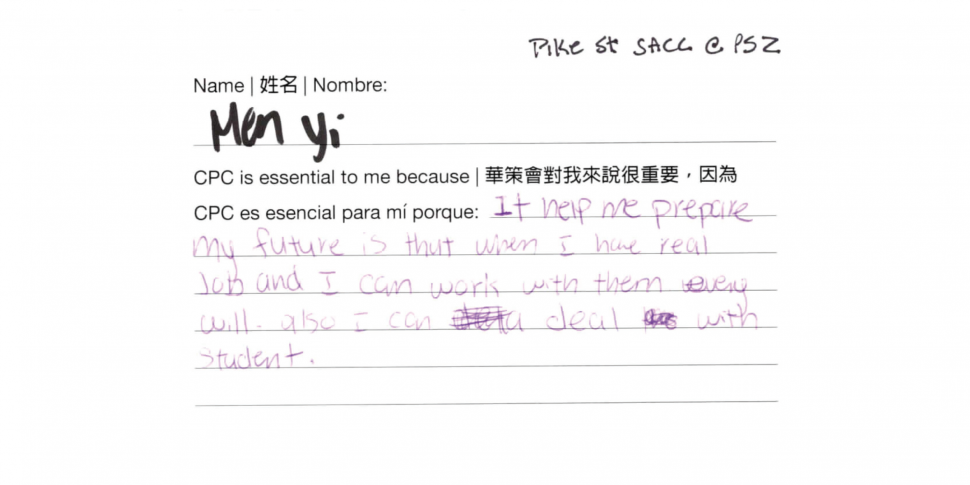 Pike St SACC @ PS2
Name | 姓名 | Nombre:
Men Yi
CPC is essential to me because | 華策會對我來說很重要，因為
CPC es esencial para mí porque: It help me prepare
my future is that when I have real
Job and I can work with them every
will. also I can a deal with
student.